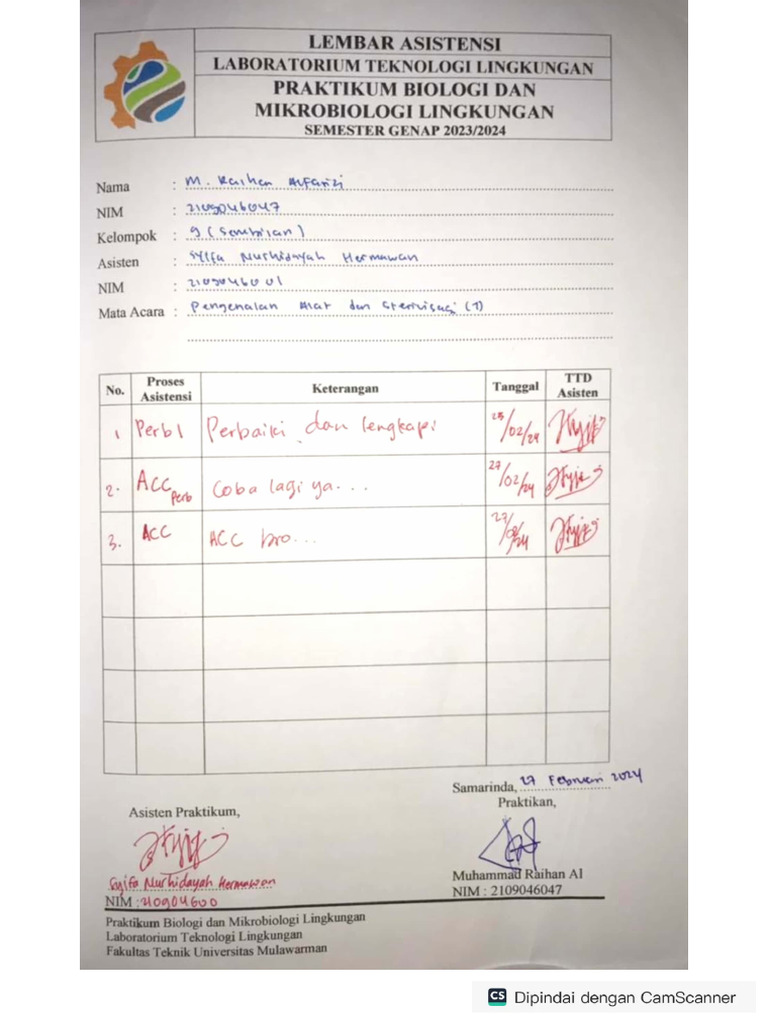 LEMBAR ASISTENSI
LABORATORIUM TEKNOLOGI LINGKUNGAN
PRAKTIKUM BIOLOGI DAN
MIKROBIOLOGI LINGKUNGAN
SEMESTER GENAP 2023/2024
Nama : M. Raihan Alfarizi
NIM : 2109046047
Kelompok : 9 (Sembilan)
Asisten : Syifa Nurhidayah Hermawan
NIM : 2109046001
Mata Acara : Pengenalan Alat dan Sterilisasi (1)
No. Proses Asistensi Keterangan Tanggal TTD Asisten
1 Perb1 Perbaiki dan lengkapi 25/02/24
2. ACC perb Coba lagi ya... 27/02/24
3. ACC ACC bro... 27/02/24
Samarinda, 27 Februari 2024
Asisten Praktikum, Praktikan,
Syifa Nurhidayah Hermawan Muhammad Raihan Al
NIM : NIM : 2109046047
Praktikum Biologi dan Mikrobiologi Lingkungan
Laboratorium Teknologi Lingkungan
Fakultas Teknik Universitas Mulawarman
CS Dipindai dengan CamScanner